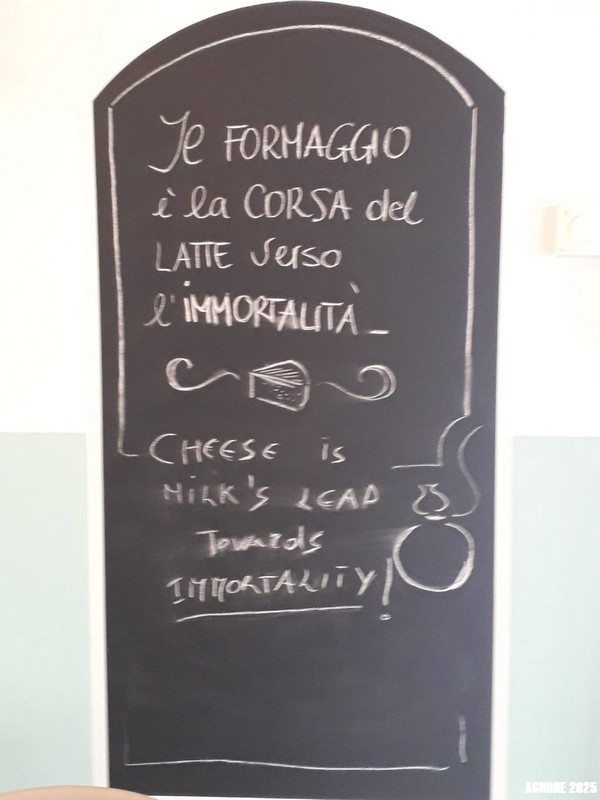 Il FORMAGGIO
è la CORSA del
LATTE verso
l'IMMORTALITÀ_
CHEESE is
MILK'S LEAD
Towards
IMMORTALITY!
AGNONE 2025